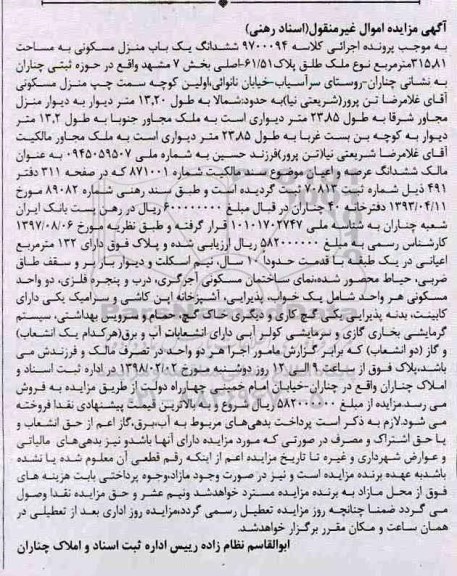 آگهی مزایده اموال غیرمنقول(اسناد رهنی)
به موجب پرونده اجرائی کلاسه ۹۷۰۰۰۹۴ ششدانگ یک باب منزل مسکونی به مساحت
۳۱۵٫۸۱مترمربع نوع ملک طلق پلاک ۶۱/۵۱-اصلی بخش ۷ مشهد واقع در حوزه ثبتی چناران
به نشانی چناران-روستای سرآسیاب-خیابان نانوائی،اولین کوچه سمت چپ منزل مسکونی
آقای غلامرضا تن پرور(شریعتی نیا)به حدود:شمالا به طول ۱۳٫۲۰ متر دیوار به دیوار منزل
مجاور شرقا به طول ۲۳٫۸۵ متر دیواری است به ملک مجاور جنوبا به طول ۱۳٫۲ متر
دیوار به کوچه بن بست غربا به طول ۲۳٫۸۵ متر دیواری است به ملک مجاور مالکیت
آقای غلامرضا شریعتی نیا(تن پرور)فرزند حسین به شماره ملی ۰۹۴۵۰۵۹۵۰۷ به عنوان
مالک ششدانگ عرصه و اعیان موضوع سند مالکیت شماره ۸۷۱۰۰۱ که در صفحه ۳۱۱ دفتر
۴۹۱ ذیل شماره ثبت ۷۰۸۱۳ ثبت گردیده است و طبق سند رهنی شماره ۸۹۰۸۲ مورخ
۱۳۹۳/۰۴/۱۱ دفترخانه ۴۰ چناران در قبال مبلغ ۶۰۰۰۰۰۰۰۰ ریال در رهن پست بانک ایران
شعبه چناران به شناسه ملی ۱۰۱۰۱۷۰۲۷۴۷ قرار گرفته و طبق نظریه مورخ ۱۳۹۷/۰۸/۰۶
کارشناس رسمی به مبلغ ۵۸۲۰۰۰۰۰۰ ریال ارزیابی شده و پلاک فوق دارای ۱۳۲ مترمربع
اعیانی در یک طبقه با قدمت حدودا ۱۰ سال، نیم اسکلت و دیوار بار بر و سقف طاق
ضربی، حیاط محصور شده،نمای ساختمان مسکونی آجرگری، درب و پنجره فلزی، دو واحد
مسکونی هر واحد شامل یک خواب، پذیرایی، آشپزخانه اپن کاشی و سرامیک یکی دارای
کابینت، بدنه پذیرایی یک گچ کاری و دیگری خاک گچ، حمام و سرویس بهداشتی، سیستم
گرمایشی بخاری گازی و سرمایشی کولر آبی دارای انشعابات آب و برق(هرکدام یک انشعاب)
و گاز (دو انشعاب) که برابر گزارش مامور اجرا هر دو واحد در تصرف مالک و فرزندش می
باشد،پلاک فوق از ساعت ۹ الی ۱۲ روز دوشنبه مورخ ۱۳۹۸/۰۲/۰۲ در اداره ثبت اسناد و
املاک چناران واقع در چناران-خیابان امام خمینی چهارراه دولت از طریق مزایده به فروش
می رسد.مزایده از مبلغ ۵۸۲۰۰۰۰۰۰ ریال شروع و به بالاترین قیمت پیشنهادی نقدا فروخته
می شود.لازم به ذکر است پرداخت بدهی‌های مربوط به آب،برق،گاز اعم از حق انشعاب و
یا حق اشتراک و مصرف در صورتی که مورد مزایده دارای آنها باشدو نیز بدهی‌های مالیاتی
و عوارض شهرداری و غیره تا تاریخ مزایده اعم از اینکه رقم قطعی آن معلوم شده یا نشده
باشدبه عهده برنده مزایده است و نیز در صورت وجود مازاد،وجوه پرداختی بابت هزینه های
فوق از محل مازاد به برنده مزایده مسترد خواهدشد ونیم عشر و حق مزایده نقدا وصول
می گردد ضمنا چنانچه روز مزایده تعطیل رسمی گردد،مزایده روز اداری بعد از تعطیلی در
همان ساعت و مکان مقرر برگزار خواهدشد.
ابوالقاسم نظام زاده رییس اداره ثبت اسناد و املاک چناران